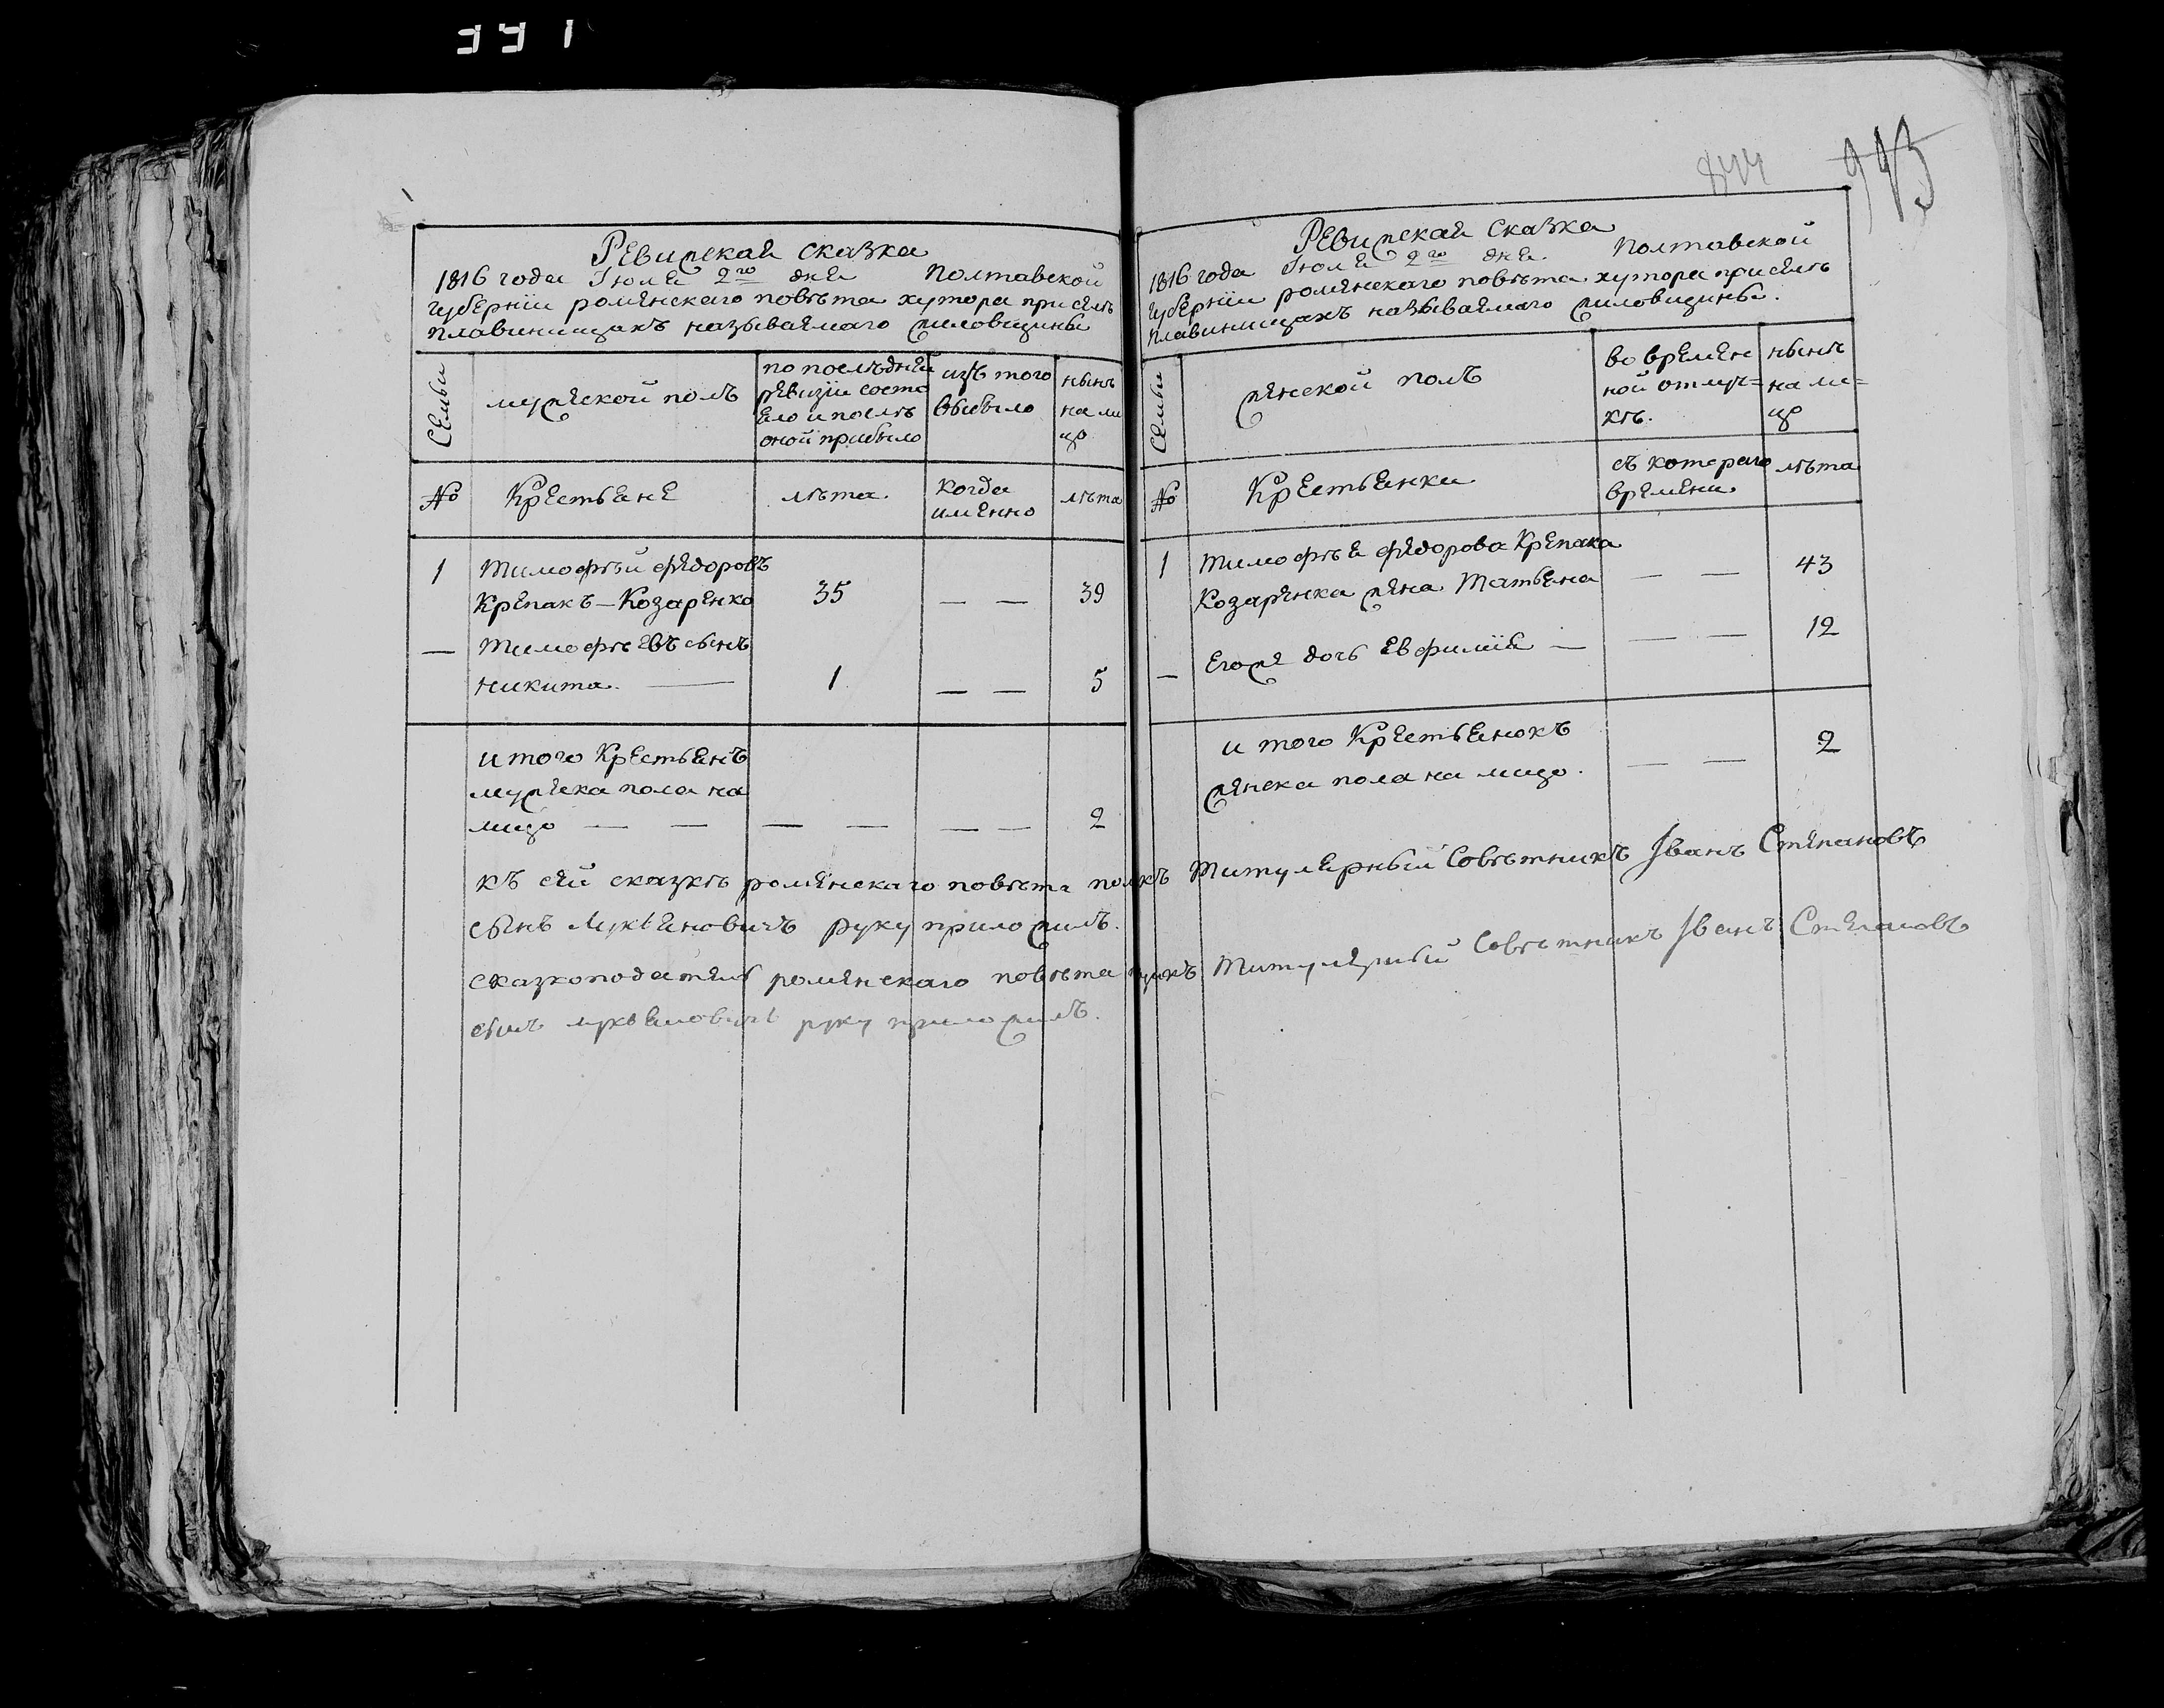 331
844 943
Ревижская сказка
1816 года Июля 2го дня Полтавской
губернїи роменскаго повѣта хутора при селѣ
плавинищахъ називаемаго жиловщины
Семьи
мужеской полъ
по послѣдней
ревизіи состо
яло и послѣ
оной прибыло
изъ того
выбыло
нынѣ
на ли
цо
№
Крестьяне
лѣта.
когда
именно
лѣта
1 Тимофѣй федоровъ
Крепакъ–Козаренко 35 — — 39
— Тимофѣевъ сынъ
никита. — 1 — — 5
итого Крестьянъ
мужеска пола на
лицо — — — — — — 2
Ревижская сказка
1816 года Июля 2го дня. Полтавской
губернїи роменскаго повѣта хутора при селѣ
плавинищахъ называемаго жиловщины.
Семьи
женской полъ
во времен
ной отлуч=
кѣ.
нынѣ
на ли=
цо
№
Крестьянки
съ котораго
времени.
лѣта
1 Тимофѣя федорова Крепака
Козаренка жена Татьяна — — 43
— Егоже дочь Евфимія — — — 12
итого Крестьянокъ
женска пола на лицо. — — 2
къ сей сказкѣ роменскаго повѣта помѣ Титулярный Совѣтникъ Іванъ Степановъ
сынъ Лукьяновичъ руку приложилъ.
сказкоподатель роменскаго повѣта Титулярный Совѣтникъ Іванъ Степановъ
сынъ лукьяновичъ руку приложилъ.